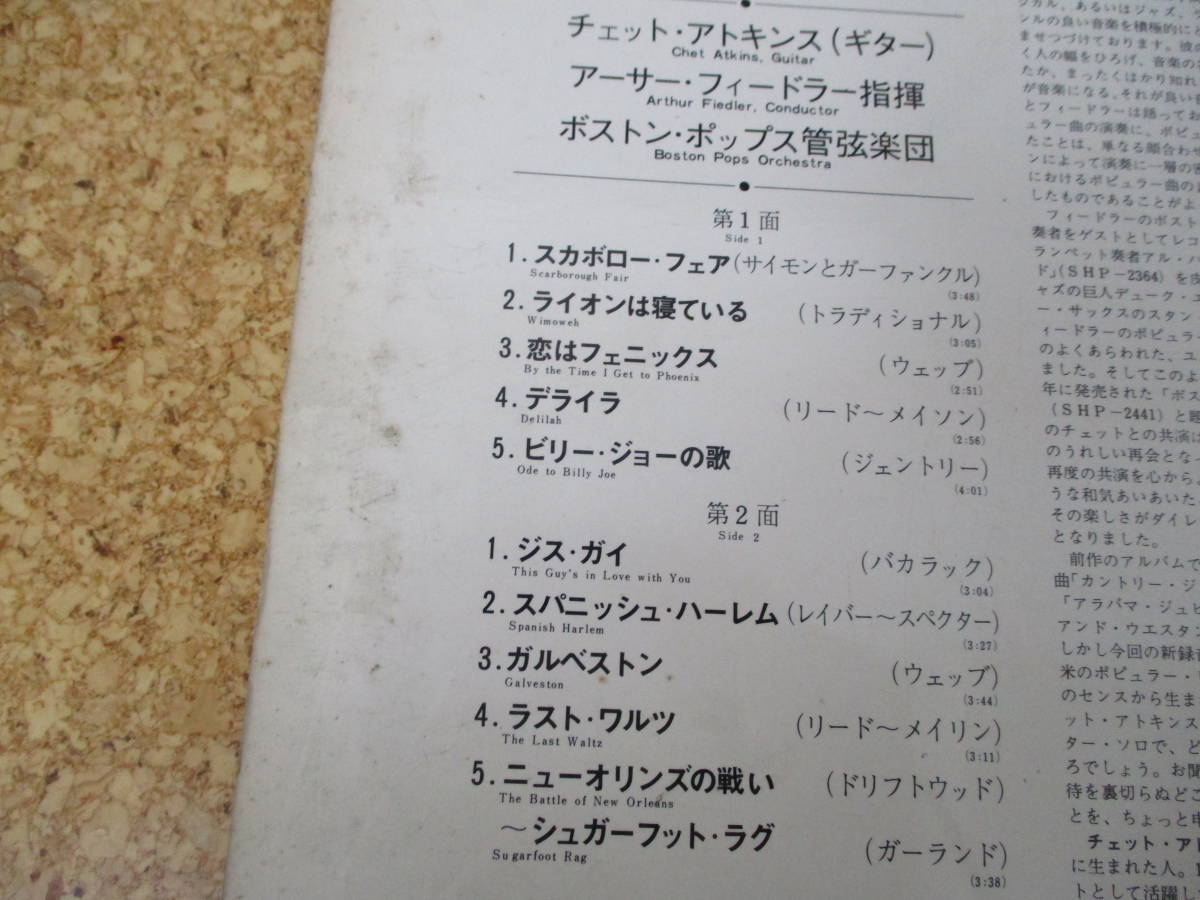 チェット・アトキンス(ギター)
Chet Atkins, Guitar
アーサー・フィードラー指揮
Arthur Fiedler, Conductor
ボストン・ポップス管弦楽団
Boston Pops Orchestra
第1面
Side 1
1.スカボロー・フェア(サイモンとガーファンクル)
Scarborough Fair
(3:48)
2.ライオンは寝ている (トラディショナル)
Wimoweh
(3:05)
3.恋はフェニックス (ウェッブ)
By the Time I Get to Phoenix
(2:51)
4.デライラ (リード〜メイソン)
Delilah
(2:56)
5.ビリー・ジョーの歌 (ジェントリー)
Ode to Billy Joe
(4:01)
第2面
Side 2
1.ジス・ガイ (バカラック)
This Guy's in Love with You
(3:04)
2.スパニッシュ・ハーレム(レイバー〜スペクター)
Spanish Harlem
(3:27)
3.ガルベストン (ウェッブ)
Galveston
(3:44)
4.ラスト・ワルツ (リード〜メイリン)
The Last Waltz
(3:11)
5.ニューオリンズの戦い (ドリフトウッド)
The Battle of New Orleans
〜シュガーフット・ラグ (ガーランド)
Sugarfoot Rag
(3:38)
ジカル、あるいはジャズ、
ンルの良い音楽を積極的に
ませつづけております。彼の
く人の幅をひろげ、音楽の
たか、まったくはかり知れ
が音楽になる。それが良い音
とフィードラーは語ってお
ュラー曲の演奏に、ポピュ
たことは、単なる顔合わせ
ンによって演奏に一層の
におけるポピュラー曲の
したものであることがよ
フィードラーのボスト
奏者をゲストとしてレコ
ランペット奏者アル・ハ
ド」(SHP-2364)を
ャズの巨人デューク・
ー・サックスのスタン
ィードラーのポピュラー
のよくあらわれた、ユ
ました。そしてこのよ
年に発売された「ボス
(SHP-2441)と題
のチェットとの共演は
のうれしい再会となっ
再度の共演を心から
うな和気あいあいた
その楽しさがダイレ
となりました。
前作のアルバムで
曲「カントリー・ジ
「アラバマ・ジュビ
アンド・ウエスタ
しかし今回の新録音
米のポピュラー・
のセンスから生ま
ット・アトキンス
ター・ソロで、ど
ろでしょう。お聞
待を裏切らぬどこ
とを、ちょっと申
チェット・アト
に生まれた人。
トとして活躍し